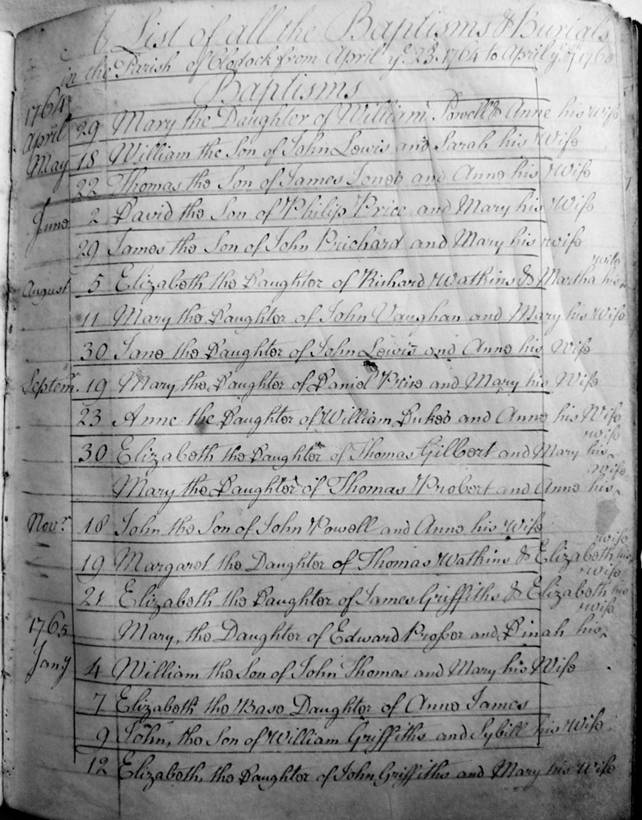 A List of all the Baptisms & Burials
in the Parish of Clodock from April ye 23. 1764 to April ye
Baptisms
1764
April 29 Mary the Daughter of William Powell & Anne his Wife
May 18 William the Son of John Lewis and Sarah his Wife
22 Thomas the Son of James Jones and Anne his Wife
June 2 David the Son of Philip Price and Mary his Wife
29 James the Son of John Prichard and Mary his wife
August 5 Elizabeth the Daughter of Richard Watkins & Martha his wife
11 Mary the Daughter of John Vaughan and Mary his Wife
30 Jane the Daughter of John Lewis and Anne his Wife
Septem. 19 Mary the Daughter of Daniel Price and Mary his Wife
23 Anne the Daughter of William and Anne his Wife
30 Elizabeth the Daughter of Thomas Gilbert and Mary his wife
Mary the Daughter of Thomas Probert and Anne his wife
Novr. 18 John the Son of John Powell and Anne his Wife
19 Margaret the Daughter of Thomas Watkins & Elizabeth his wife
21 Elizabeth the Daughter of James Griffiths & Elizabeth his wife
1765 Mary, the Daughter of Edward Prosser and Dinah his wife
Jany 4 William the Son of John Thomas and Mary his Wife
7 Elizabeth the Base Daughter of Anne James
9 John, the Son of William Griffiths and Sybill his Wife
12 Elizabeth, the Daughter of John Griffiths and Mary his Wife